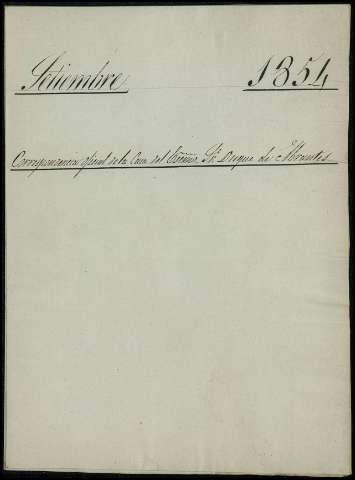 Setiembre 1854
Correspondencia oficial de la Casa del Excmo. Sr. Duque de Abrantes